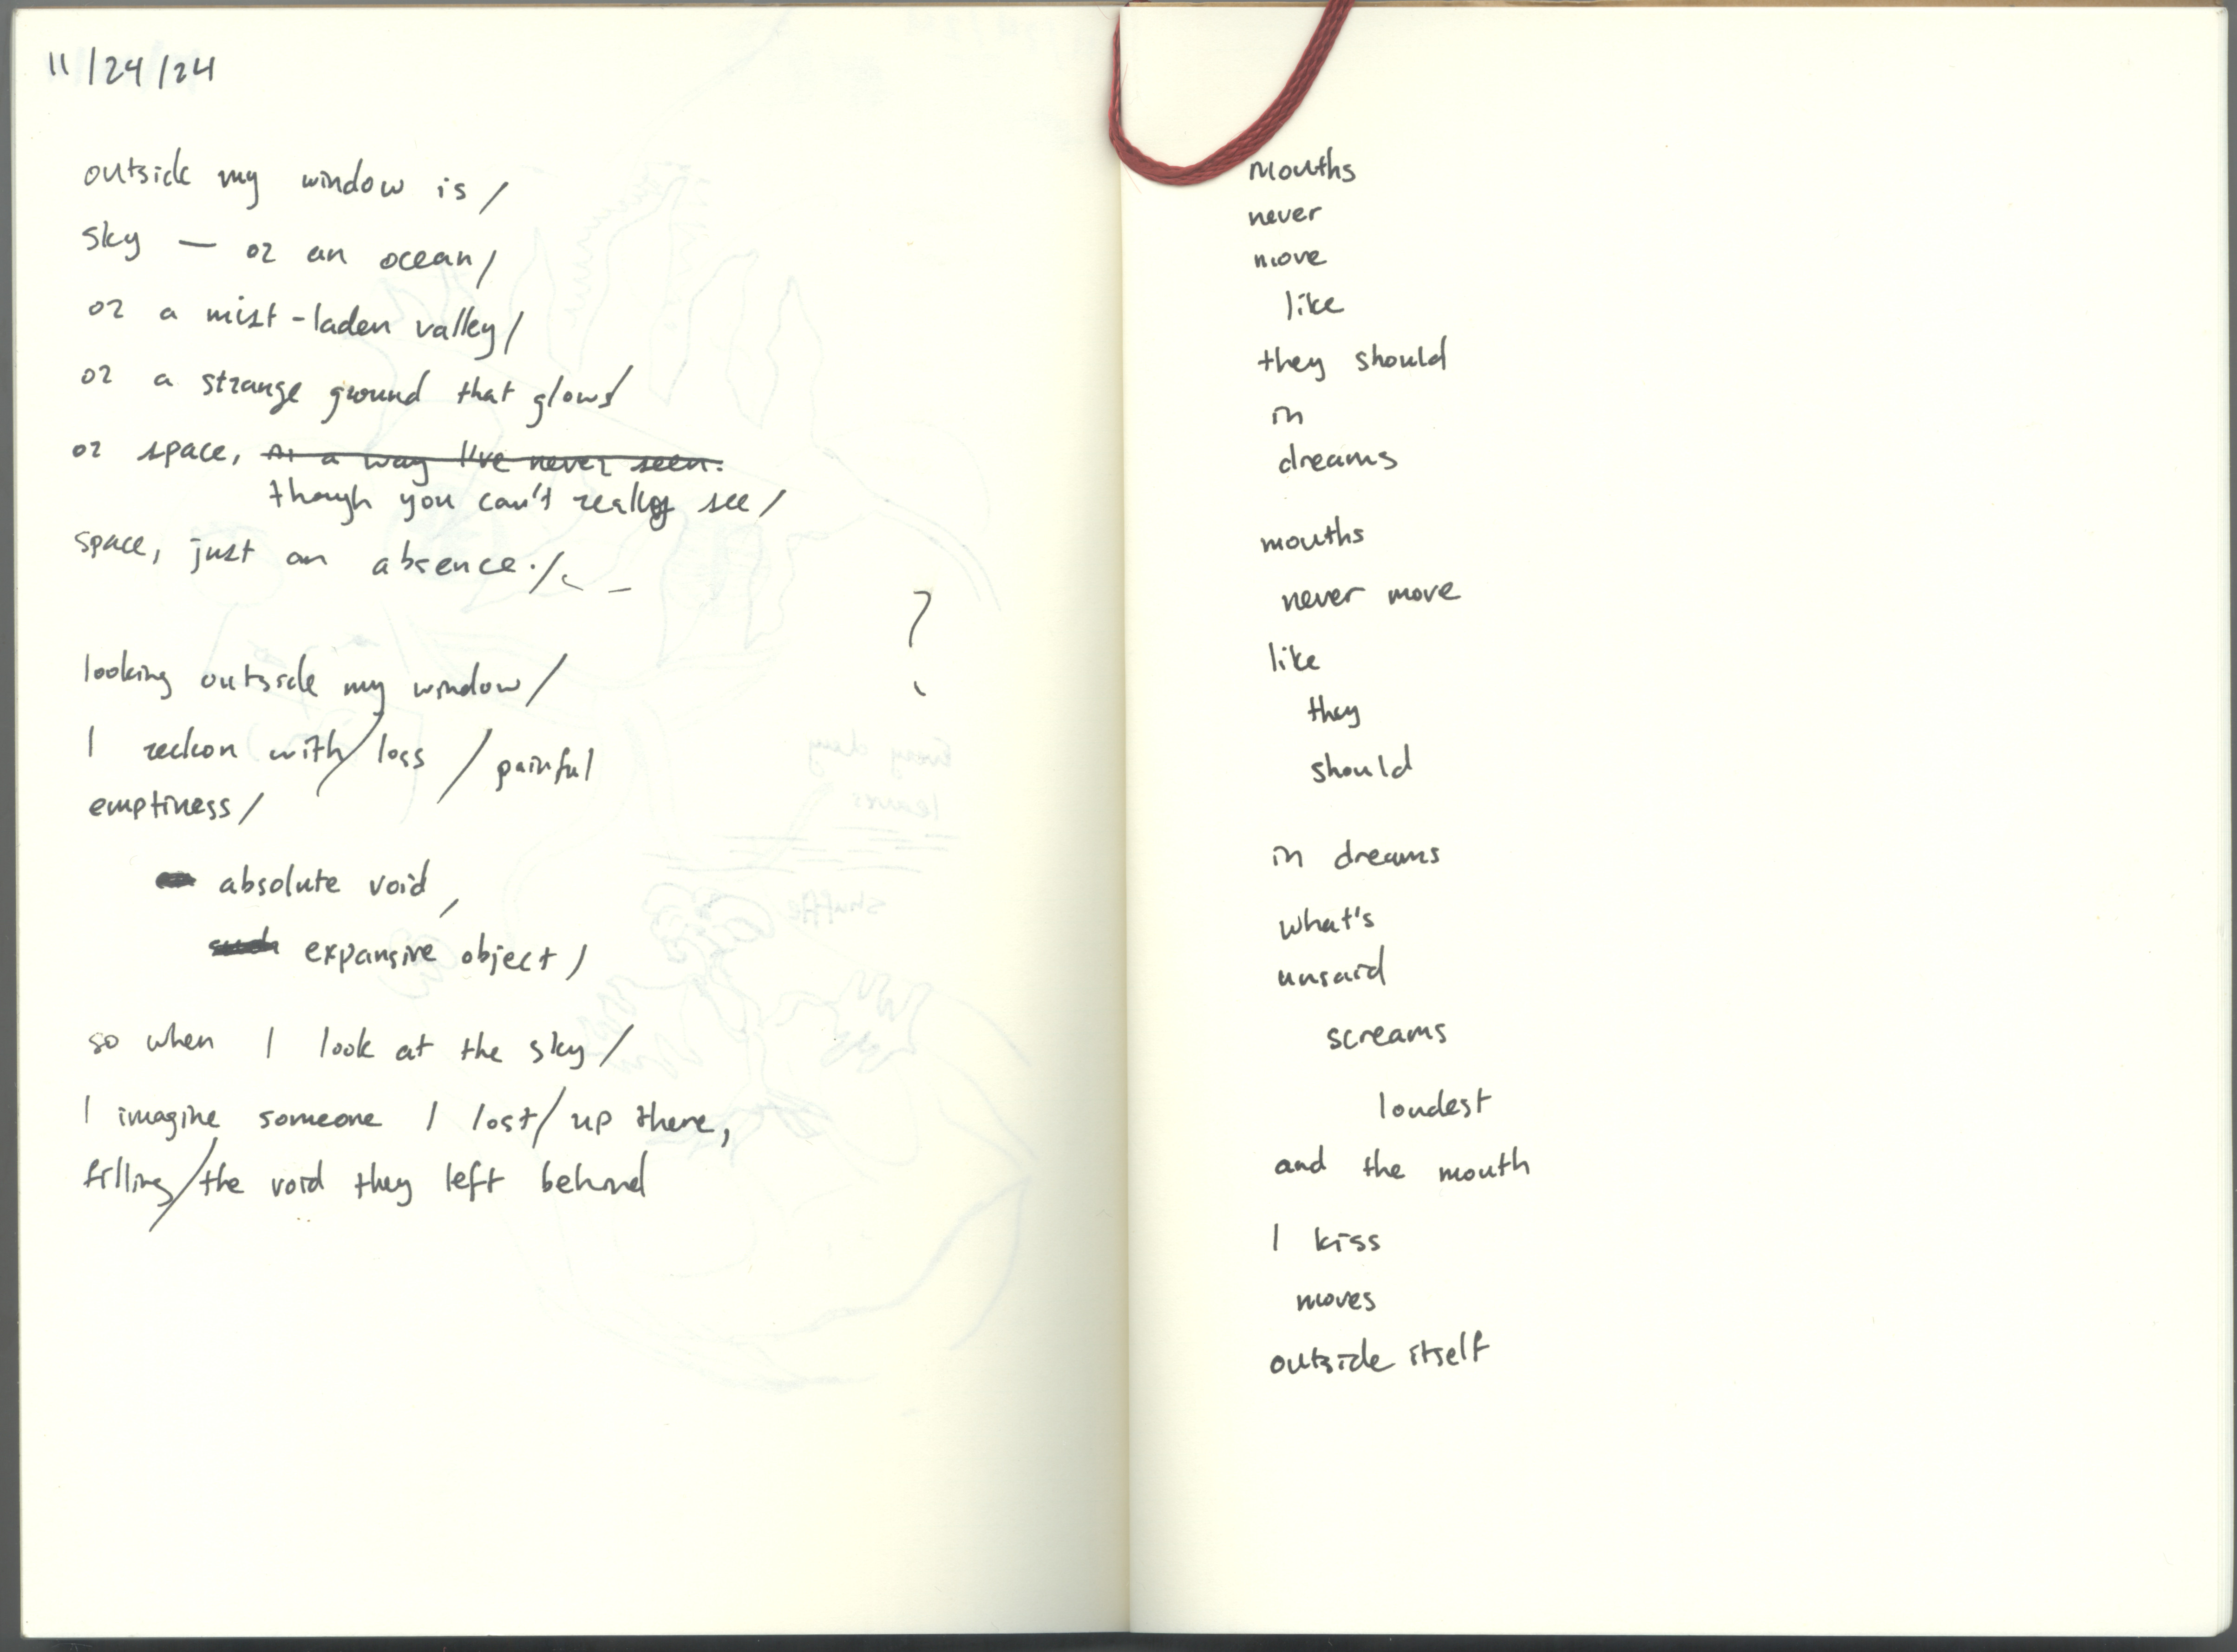 11/24/24
outside my window is/
sky — or an ocean/
or a mist-laden valley/
or a strange ground that glows/
or space, in a way I've never seen.
though you can't really see/
space, just an absence./
?
looking outside my window/
I reckon with/loss/painful
emptiness/
absolute void,
such expansive object/
so when I look at the sky/
I imagine someone I lost/up there,
filling/the void they left behind
mouths
never
move
like
they should
in
dreams
mouths
never move
like
they
should
in dreams
what's
unsaid
screams
loudest
and the mouth
I kiss
moves
outside itself
Every day
leaves
shuffle